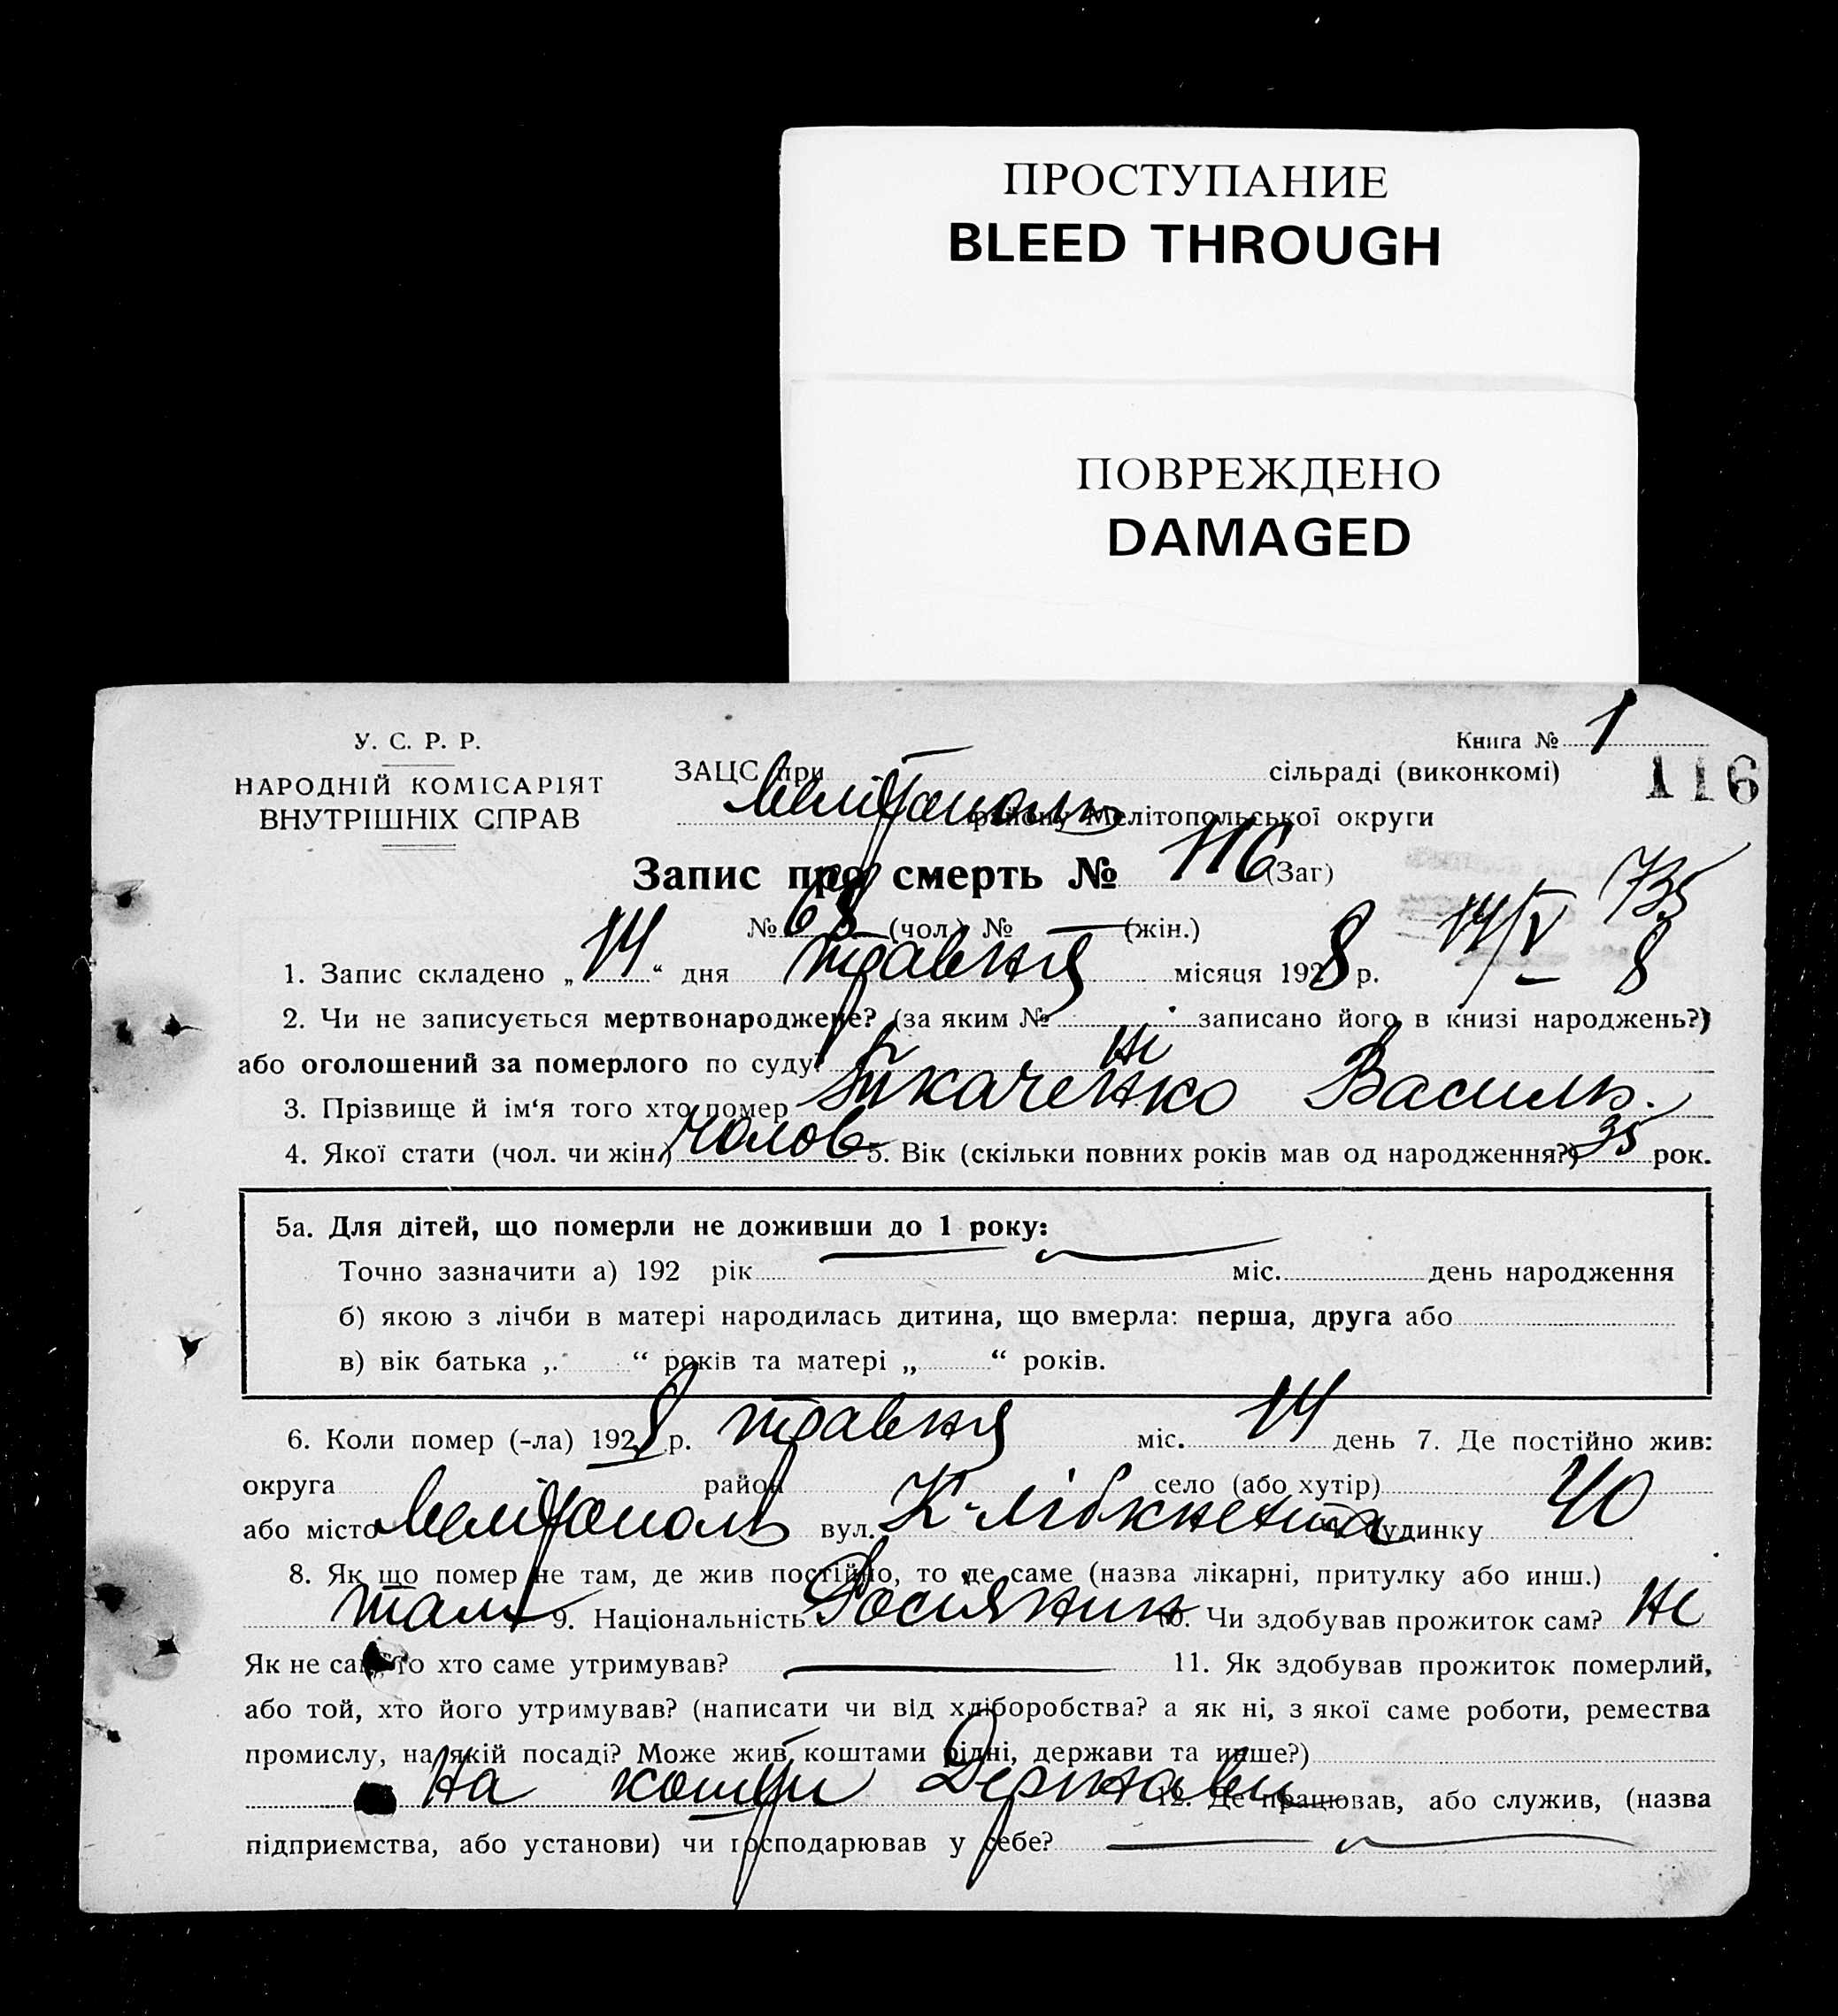 ПРОСТУПАНИЕ
BLEED THROUGH
ПОВРЕЖДЕНО
DAMAGED
У. С. Р. Р.
НАРОДНІЙ КОМІСАРІЯТ
ВНУТРІШНІХ СПРАВ
Книга № 1
116
ЗАЦС при сільраді (виконкомі)
Мелітополь району Мелітопольської округи
Запис про смерть № 116 (Заг)
735
№ 68 (чол.) № — (жін.)
14/V 8
1. Запис складено „ 14 “ дня травня місяця 1928 р.
2. Чи не записується мертвонароджене? (за яким № записано його в книзі народжень?)
або оголошений за померлого по суду? Ні
3. Прізвище й ім'я того хто помер Ткаченко Василь.
4. Якої стати (чол. чи жін.) Чолов 5. Вік (скільки повних років мав од народження?) 35 рок.
5а. Для дітей, що померли не доживши до 1 року:
Точно зазначити а) 192 рік міс. день народження
б) якою з лічби в матері народилась дитина, що вмерла: перша, друга або
в) вік батька „ “ років та матері „ “ років.
6. Коли помер (-ла) 1928 р. травня міс. 14 день 7. Де постійно жив:
округа район село (або хутір)
або місто Мелітополь вул. К-Лібкнехта № будинку 40
8. Як що помер не там, де жив постійно, то де саме (назва лікарні, притулку або инш.)
там 9. Національність Росіянин 10. Чи здобував прожиток сам? Ні
Як не сам, то хто саме утримував? — 11. Як здобував прожиток померлий,
або той, хто його утримував? (написати чи від хліборобства? а як ні, з якої саме роботи, ремества
промислу, на якій посаді? Може жив коштами рідні, держави та инше?)
На кошти Держави 12. Де працював, або служив, (назва
підприємства, або установи) чи господарював у себе? —